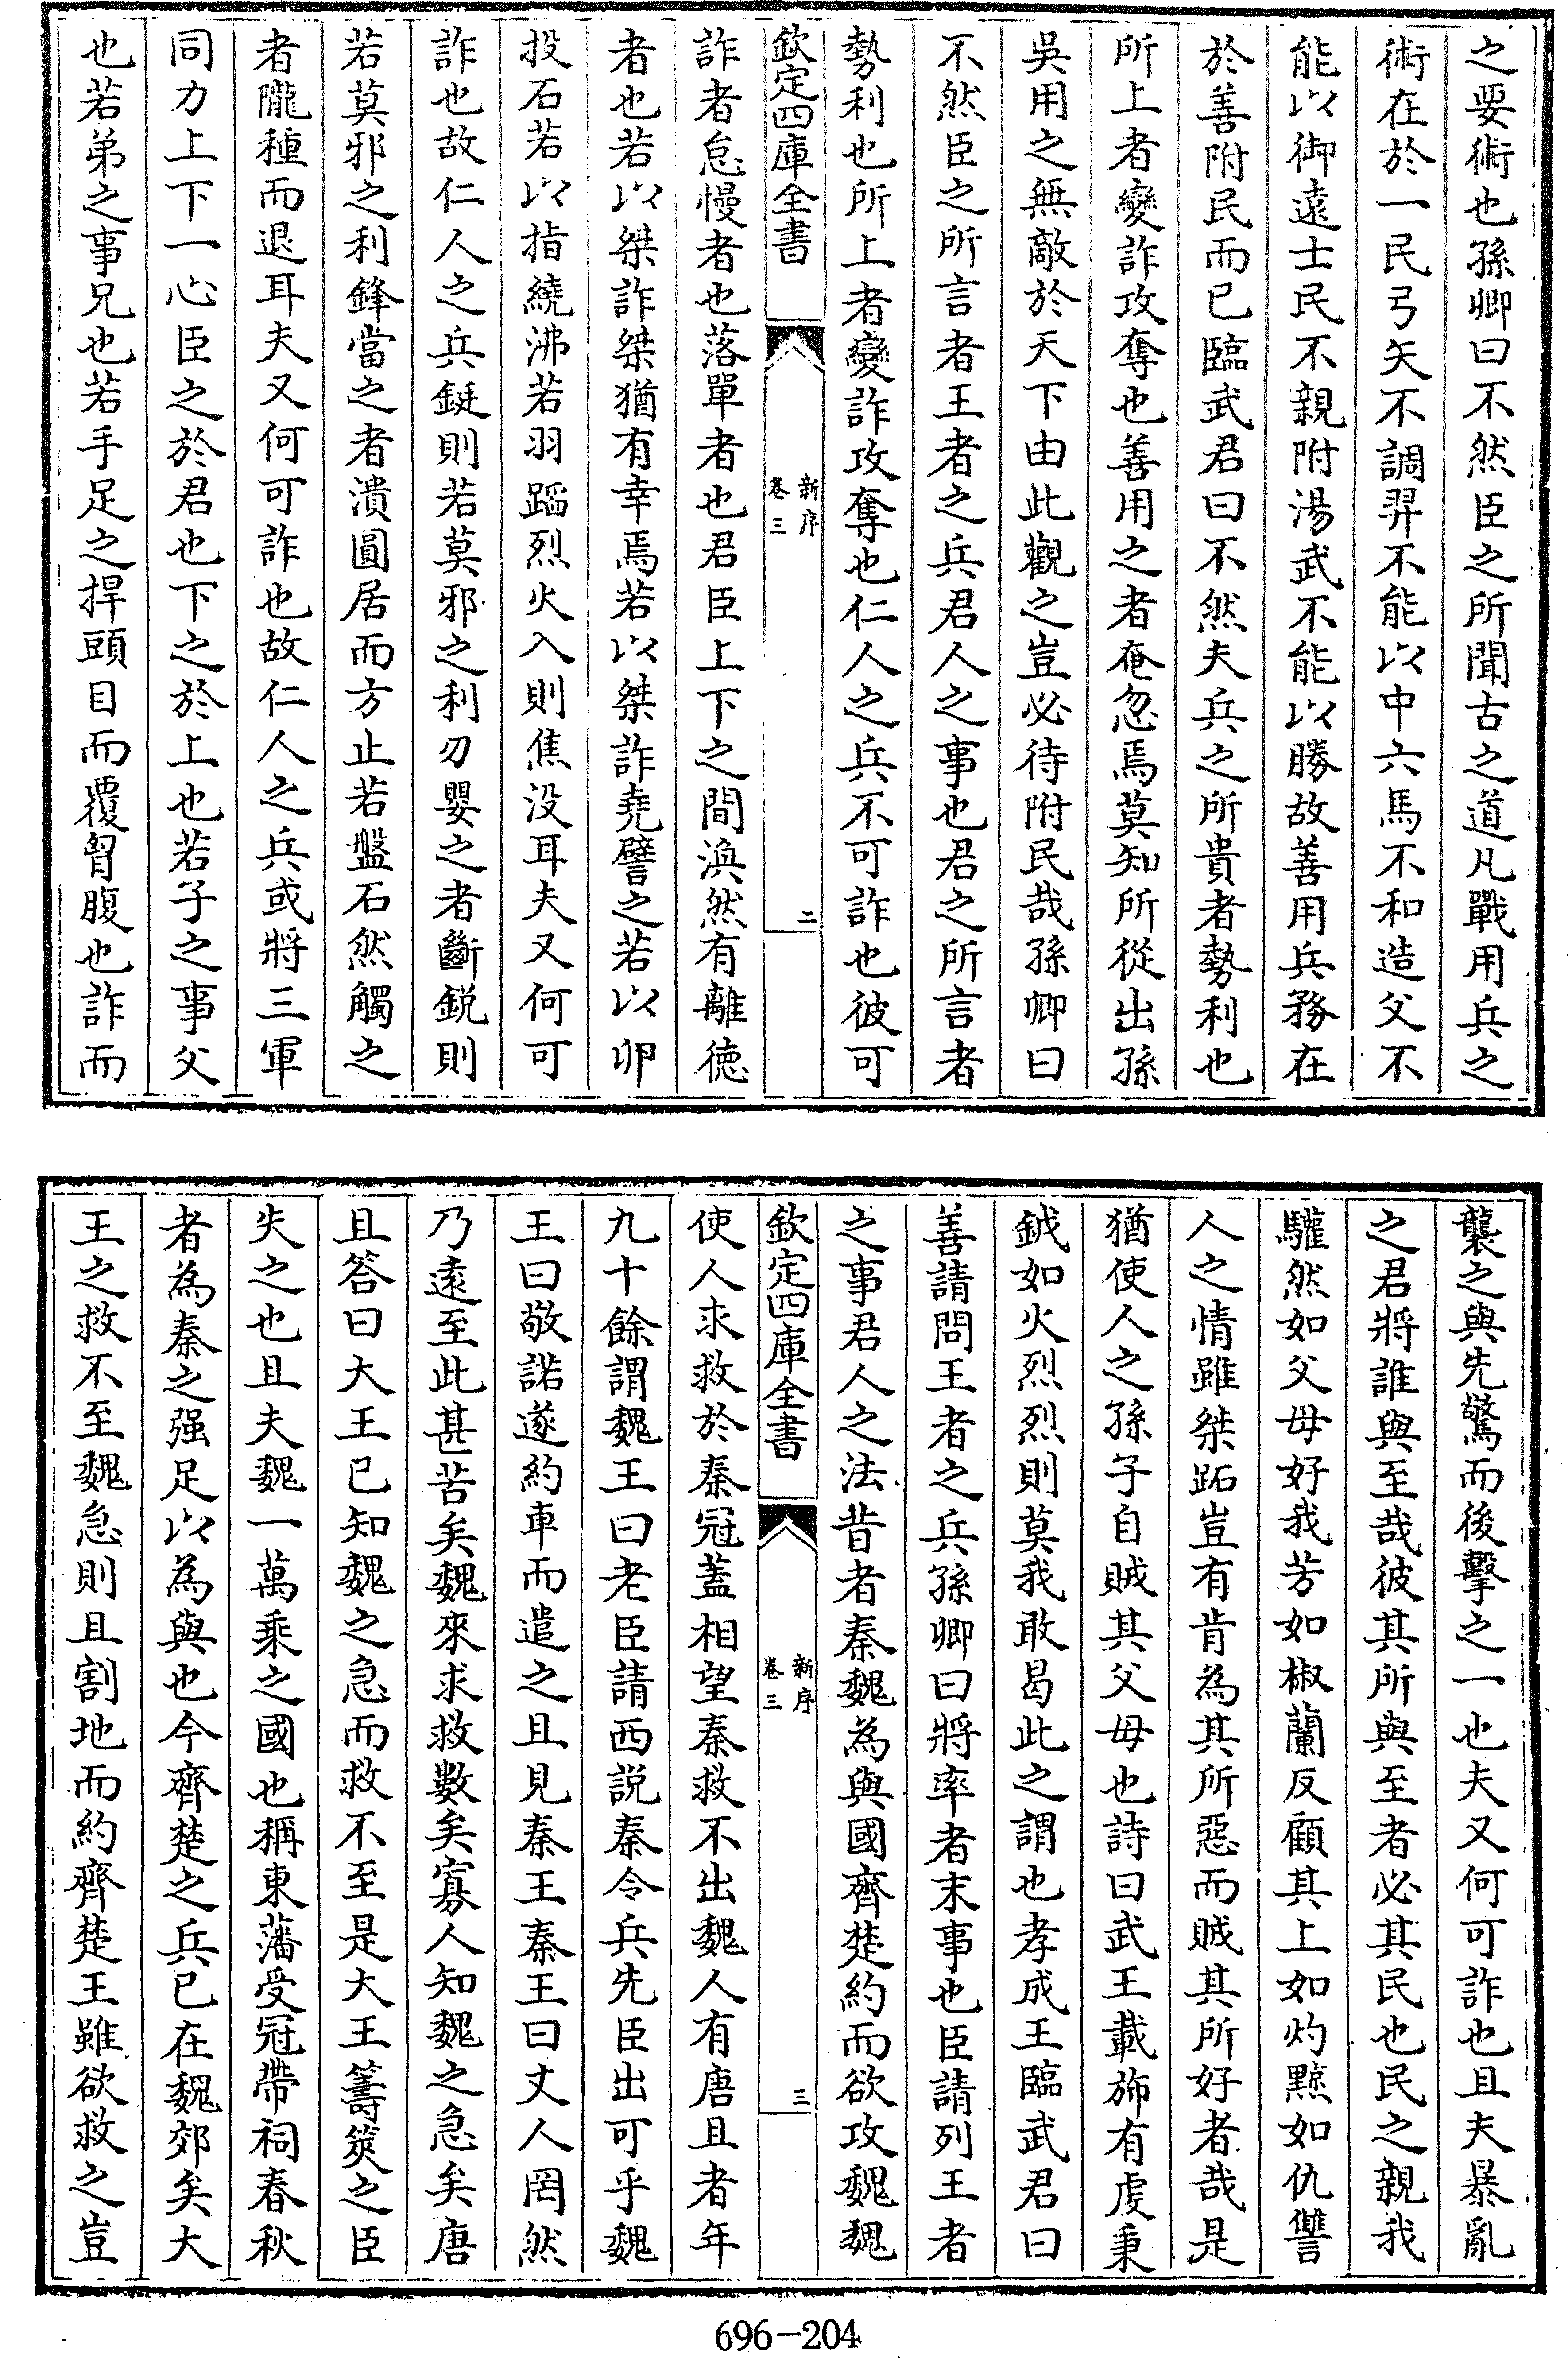 之要術也孫卿曰不然臣之所聞古之道凡戰用兵之
術在於一民弓矢不調羿不能以中六馬不和造父不
能以御遠士民不親附湯武不能以勝故善用兵務在
於善附民而已臨武君曰不然夫兵之所貴者勢利也
所上者變詐攻奪也善用之者奄忽焉莫知所從出孫
吳用之無敵於天下由此觀之豈必待附民哉孫卿曰
不然臣之所言者王者之兵君人之事也君之所言者
勢利也所上者變詐攻奪也仁人之兵不可詐也彼可
欽定四庫全書
新序
卷三
二
詐者怠慢者也落單者也君臣上下之間渙然有離德
者也若以桀詐桀猶有幸焉若以桀詐堯譬之若以卵
投石若以指繞沸若羽蹈烈火入則焦没耳夫又何可
詐也故仁人之兵鋌則若莫邪之利刃嬰之者斷銳則
若莫邪之利鋒當之者潰圓居而方止若盤石然觸之
者隴種而退耳夫又何可詐也故仁人之兵或將三軍
同力上下一心臣之於君也下之於上也若子之事父
也若弟之事兄也若手足之捍頭目而覆胷腹也詐而
襲之與先驚而後擊之一也夫又何可詐也且夫暴亂
之君將誰與至哉彼其所與至者必其民也民之親我
驩然如父母好我芳如椒蘭反顧其上如灼黥如仇讐
人之情雖桀跖豈有肯為其所惡而賊其所好者哉是
猶使人之孫子自賊其父母也詩曰武王載斾有虔秉
鉞如火烈烈則莫我敢曷此之謂也孝成王臨武君曰
善請問王者之兵孫卿曰將率者末事也臣請列王者
之事君人之法昔者秦魏為與國齊楚約而欲攻魏魏
欽定四庫全書
新序
卷三
三
使人求救於秦冠蓋相望秦救不出魏人有唐且者年
九十餘謂魏王曰老臣請西說秦令兵先臣出可乎魏
王曰敬諾遂約車而遣之且見秦王秦王曰丈人罔然
乃遠至此甚苦矣魏來求救數矣寡人知魏之急矣唐
且答曰大王已知魏之急而救不至是大王籌筴之臣
失之也且夫魏一萬乘之國也稱東藩受冠帶祠春秋
者為秦之强足以為與也今齊楚之兵已在魏郊矣大
王之救不至魏急則且割地而約齊楚王雖欲救之豈
696-204